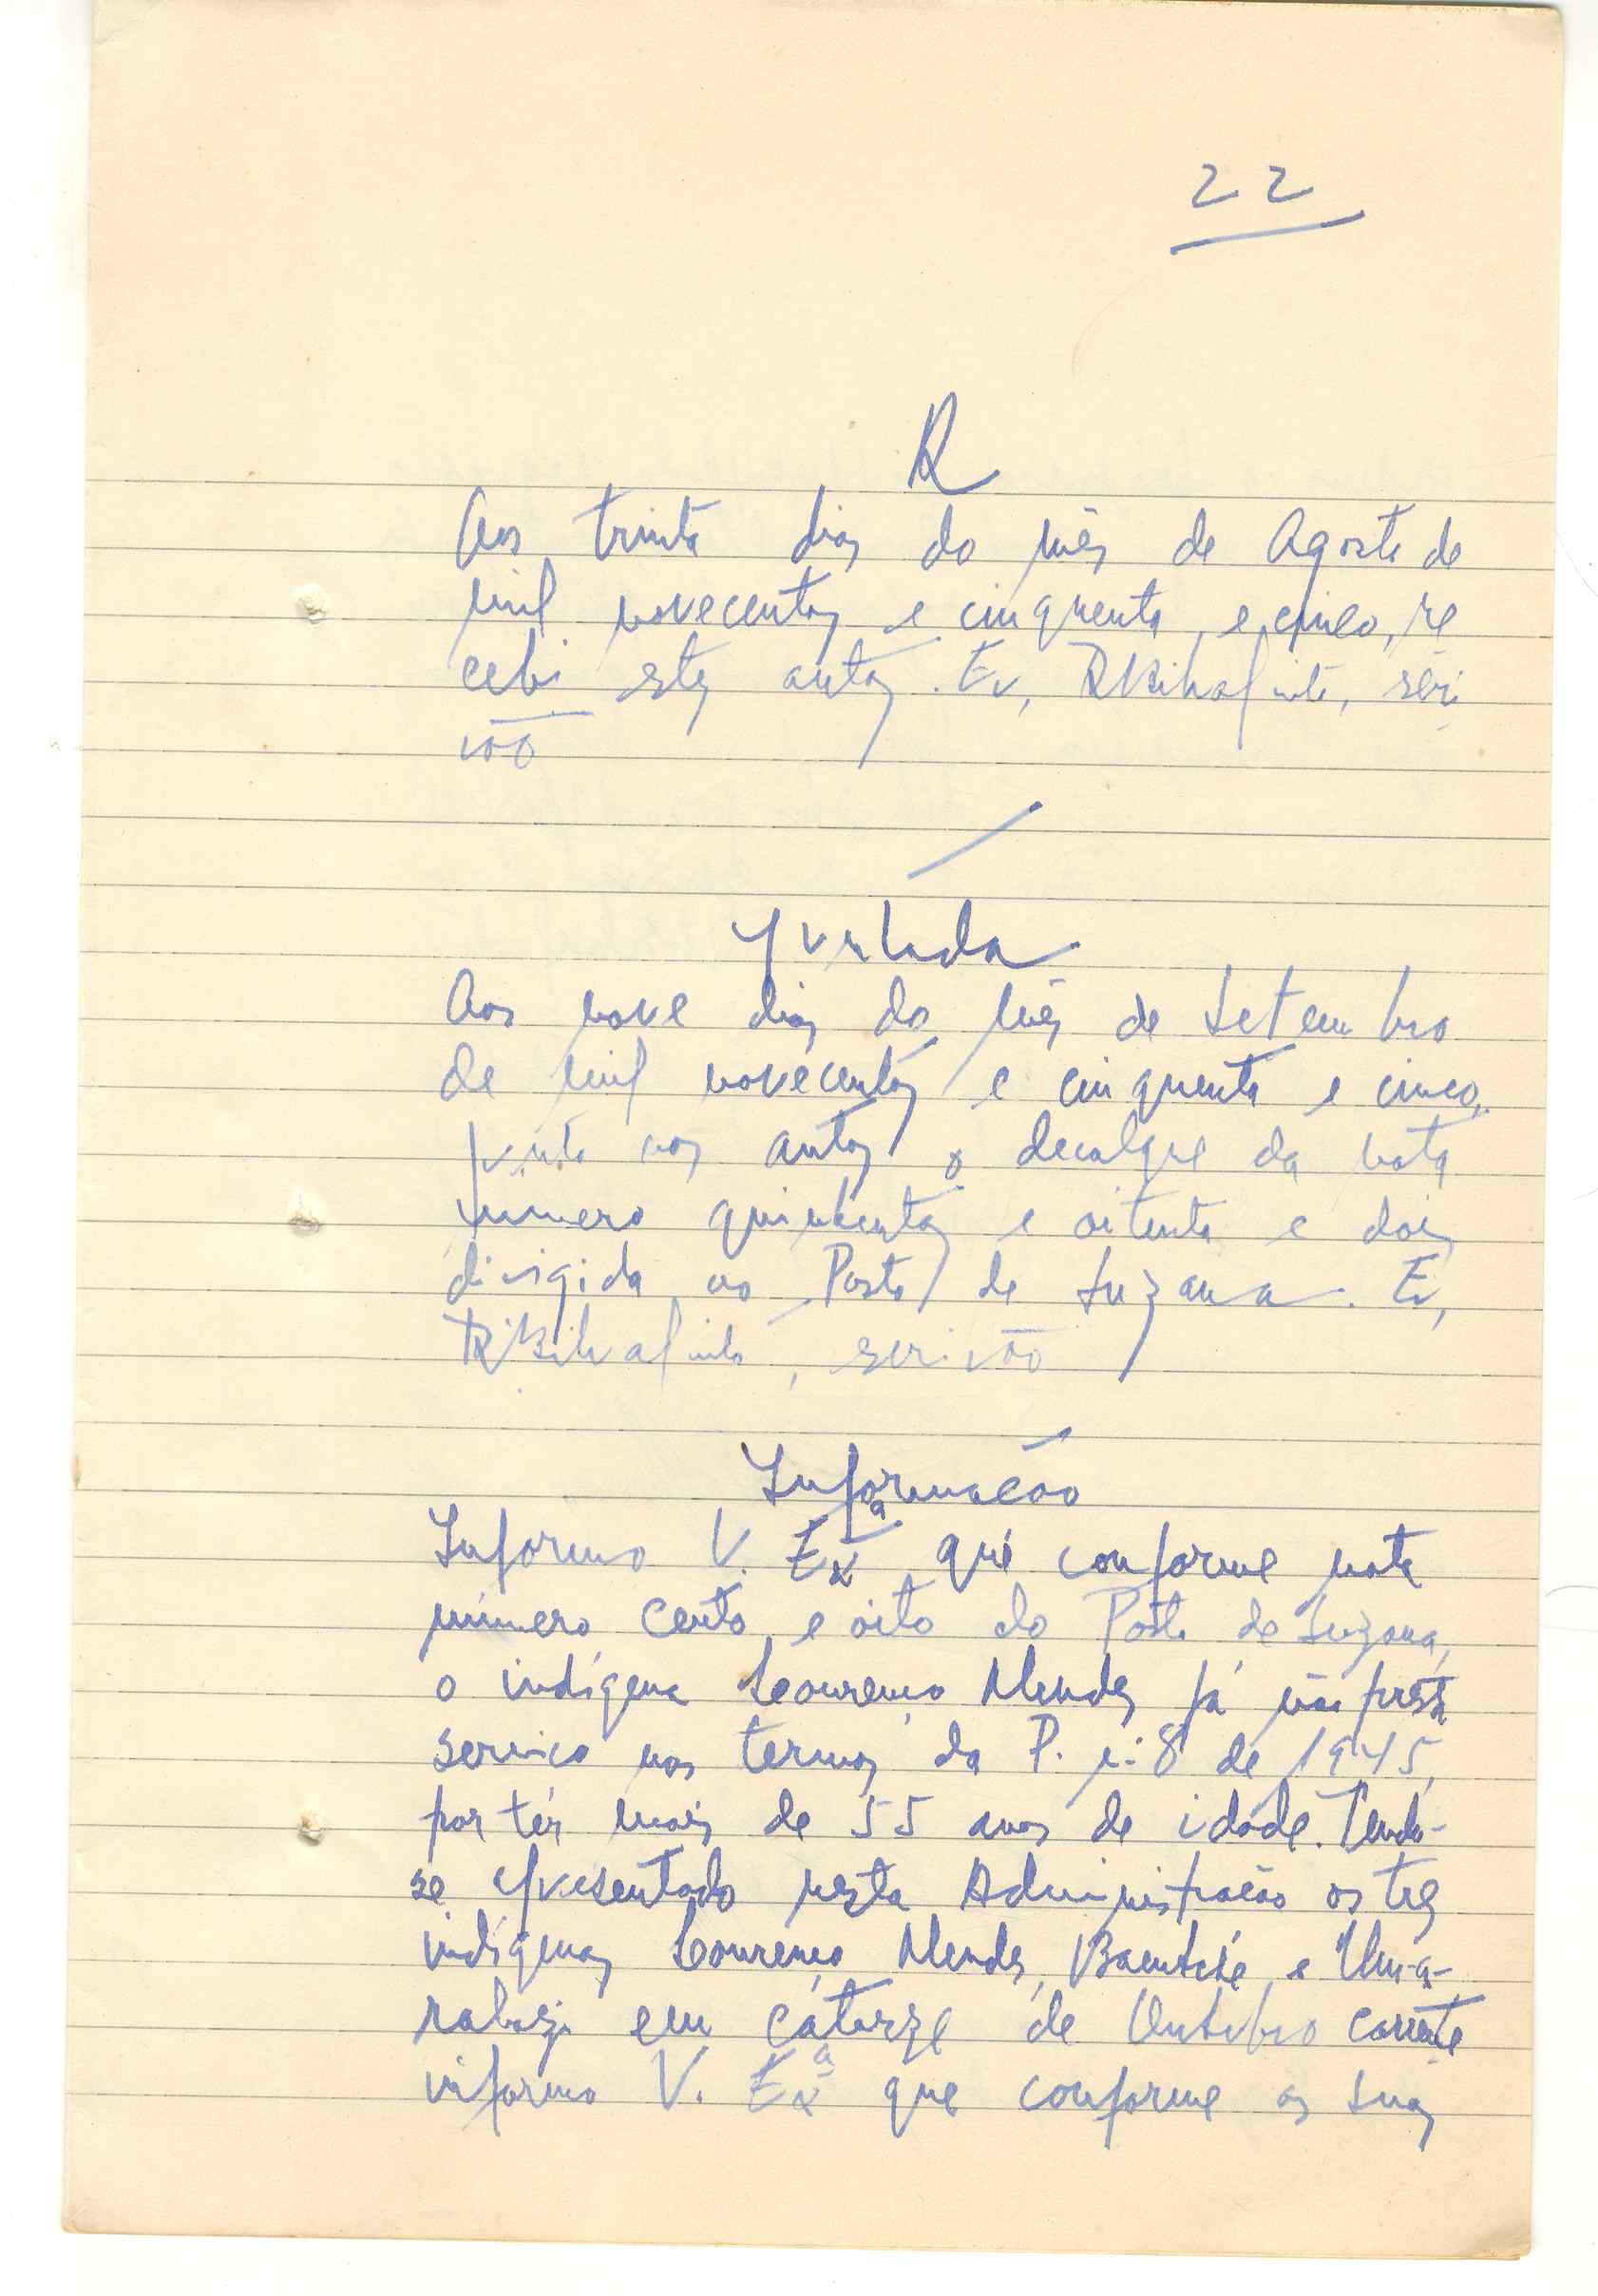 22
R
Aos trinta dias do mês de Agosto de
mil novecentos e cinquenta e cinco, re
cebi estes autos. Eu, escri
vão
Juntada
Aos nove dias do mês de Setembro
de mil novecentos e cinquenta e cinco,
junto aos autos o decalque da nota
número quinhentos e oitenta e dois
dirigida ao Posto de Suzana. Eu,
, escrivão
Informação
Informo V. Exª que conforme nota
número cento e oito do Posto de Suzana,
o indígena Lourenço Mendes já não presta
serviço nos termos da P. nº 8 de 1945,
por tér mais de 55 anos de idade. Tendo-
se apresentado nesta Administração os três
indígenas Lourenço Mendes, e
em catorze de Outubro corrente
informo V. Exª que conforme as suas